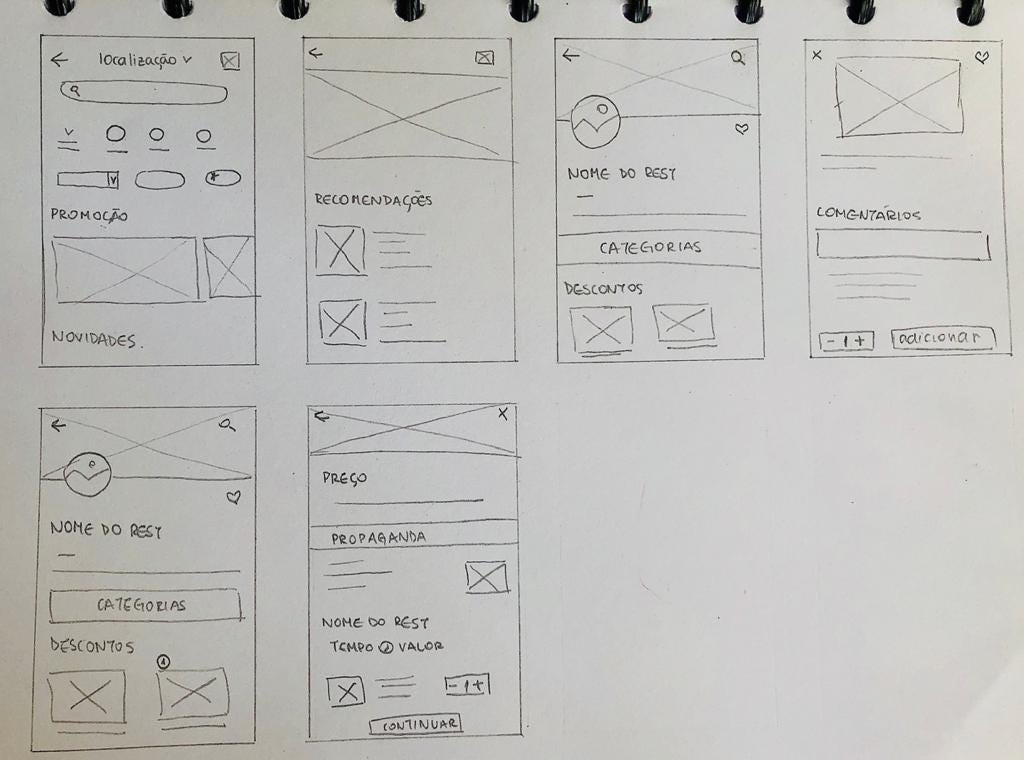 localização v
PROMOÇÃO
NOVIDADES.
RECOMENDAÇÕES
NOME DO REST
CATEGORIAS
DESCONTOS
x
COMENTÁRIOS
- 1 +
adicionar
NOME DO REST
CATEGORIAS
DESCONTOS
1
x
PREÇO
PROPAGANDA
NOME DO REST
TEMPO VALOR
- 1 +
CONTINUAR